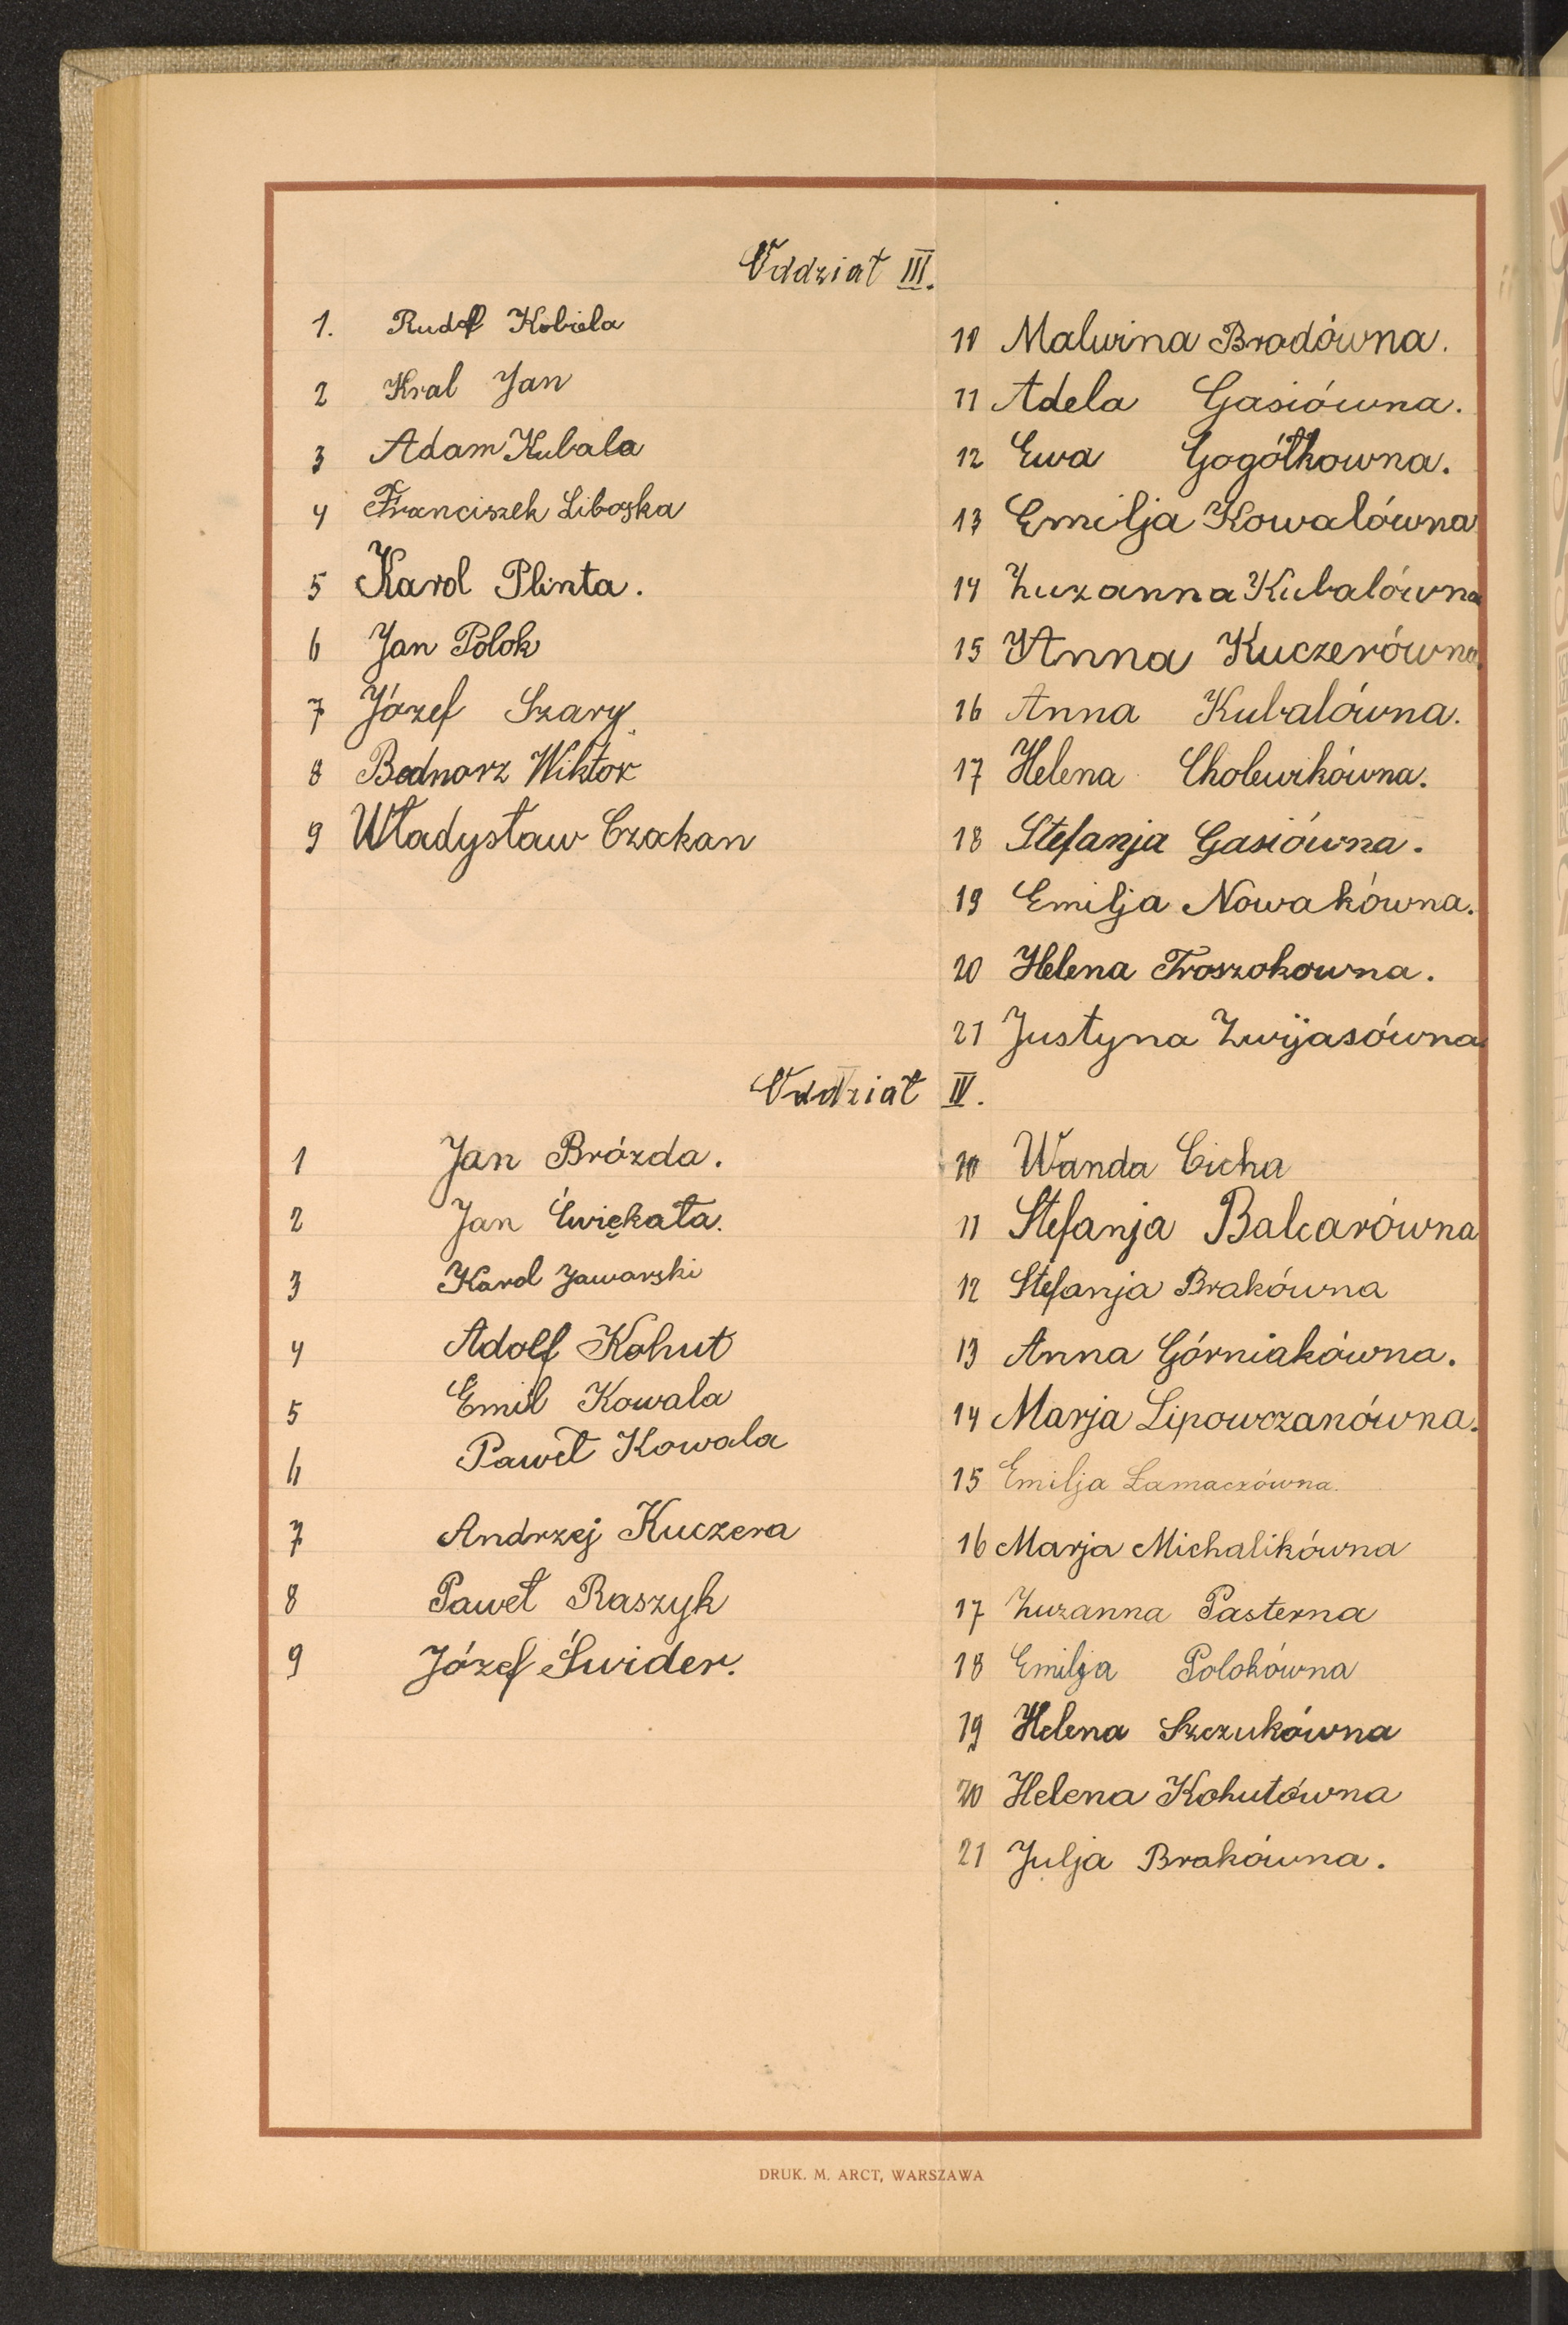 Oddział III.
1. Rudolf Kobiela
2 Kral Jan
3 Adam Kubala
4 Franciszek Liboska
5 Karol Plinta.
6 Jan Polok
7 Józef Szary
8 Bednarz Wiktor
9 Władysław Czakan
10 Malwina Bradówna.
11 Adela Gasiówna.
12 Ewa Gogółkowna.
13 Emilja Kowalówna
14 Zuzanna Kubalówna
15 Anna Kuczerówna.
16 Anna Kubalówna.
17 Helena Cholewikówna.
18 Stefanja Gasiówna.
19 Emilja Nowakówna.
20 Helena Troszokowna.
21 Justyna Zwyjasówna
Oddział IV.
1 Jan Brózda.
2 Jan Ćwiękała.
3 Karol Jaworski
4 Adolf Kohut
5 Emil Kowala
6 Paweł Kowala
7 Andrzej Kuczera
8 Paweł Raszyk
9 Józef Świder.
10 Wanda Cicha
11 Stefanja Balcarówna
12 Stefanja Brakówna
13 Anna Górniakówna.
14 Marja Lipowczanówna.
15 Emilja Łamaczówna.
16 Marja Michalikówna
17 Zuzanna Pasterna
18 Emilja Polokówna
19 Helena Szczukówna
20 Helena Kohutówna
21 Julja Brakówna.
DRUK. M. ARCT, WARSZAWA